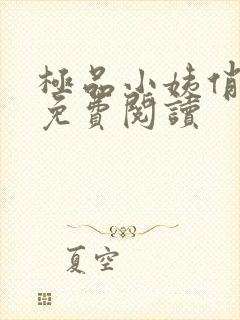 極品小姨俏
免費閱讀
夏空